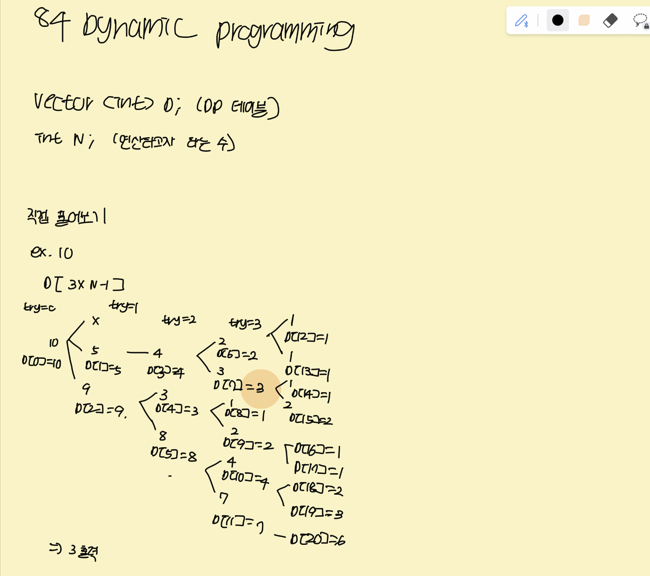 84 Dynamic programming
vector <int> D; (DP 테이블)
int N; (연산하고자 하는 수)
직접 풀어보기
ex. 10
D[3×N-1]
try=0 try=1 try=2 try=3
10
D[0]=10
x
5
D[1]=5
9
D[2]=9.
4
D[3]=4
3
D[4]=3
8
D[5]=8
2
D[6]=2
3
D[7]=3
1
D[8]=1
2
D[9]=2
4
D[10]=4
7
D[11]=7
1
D[12]=1
1
D[13]=1
1
D[14]=1
2
D[15]=2
D[16]=1
D[17]=1
D[18]=2
D[19]=3
D[20]=6
=> 3 출력